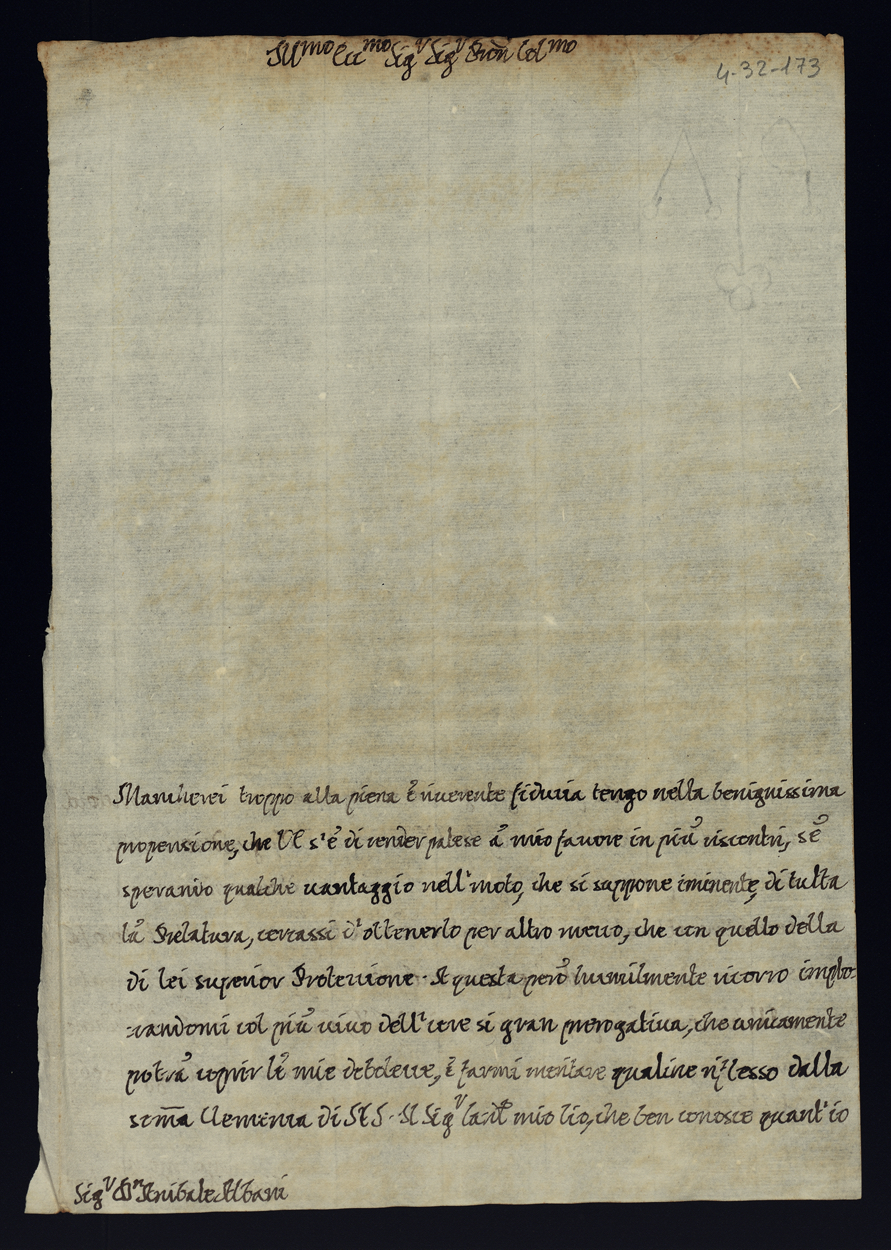 Ill.mo Ecc.mo Sig.r Sig.r Pron Col.mo
4-32-173
Mancherei troppo alla piena è riverente fiducia tengo nella benignissima
propensione, che VE s'è di render palese à mio favore in più riscontri, se
sperando qualche vantaggio nell'moto, che si suppone eminente, di tutta
la Prelatura, cercassi d'ottenerlo per altro mezzo, che con quello della
di lei superior Protezione. A questa però humilmente ricorro implo-
-randomi col più vivo dell' core si gran prerogativa, che unicamente
potrà coprir le mie debolezze, è farmi meritare qualche riflesso dalla
som̃a Clemenza di S S. Il Sig.r Card.le mio Zio, che ben conosce quant'io
Sig.r D.n Anibale Albani